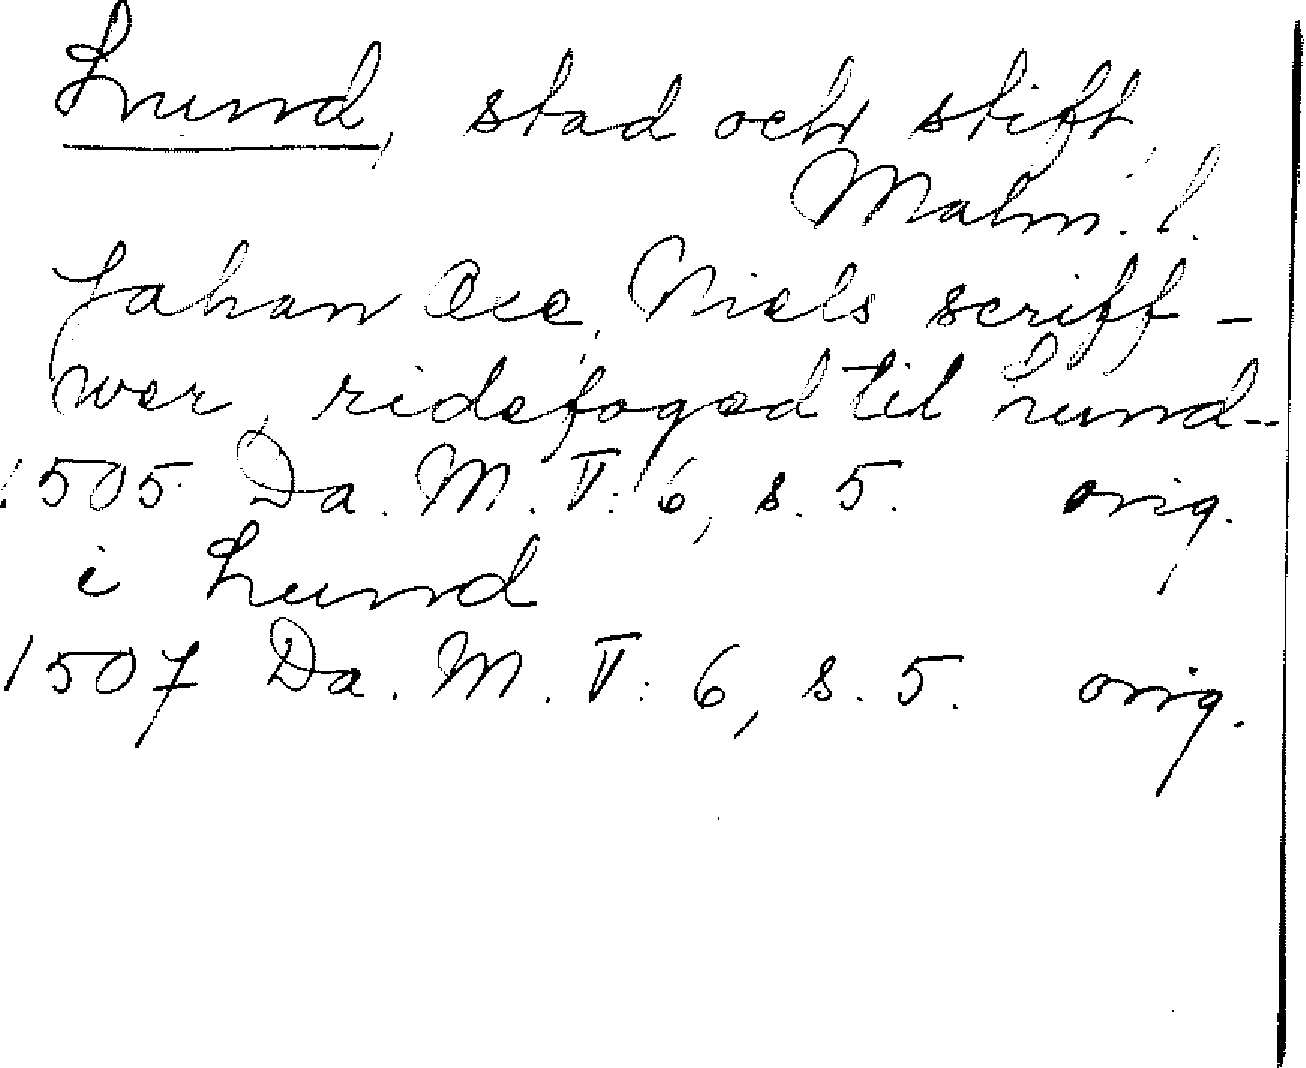 Lund, stad och stift,
Malm. l.
Jahan Oce, Niels scriff-
wer, ridefoged til Lund--
1505 Da. M. V: 6, s. 5. orig.
i Lund
1507 Da. M. V: 6, s. 5. orig.